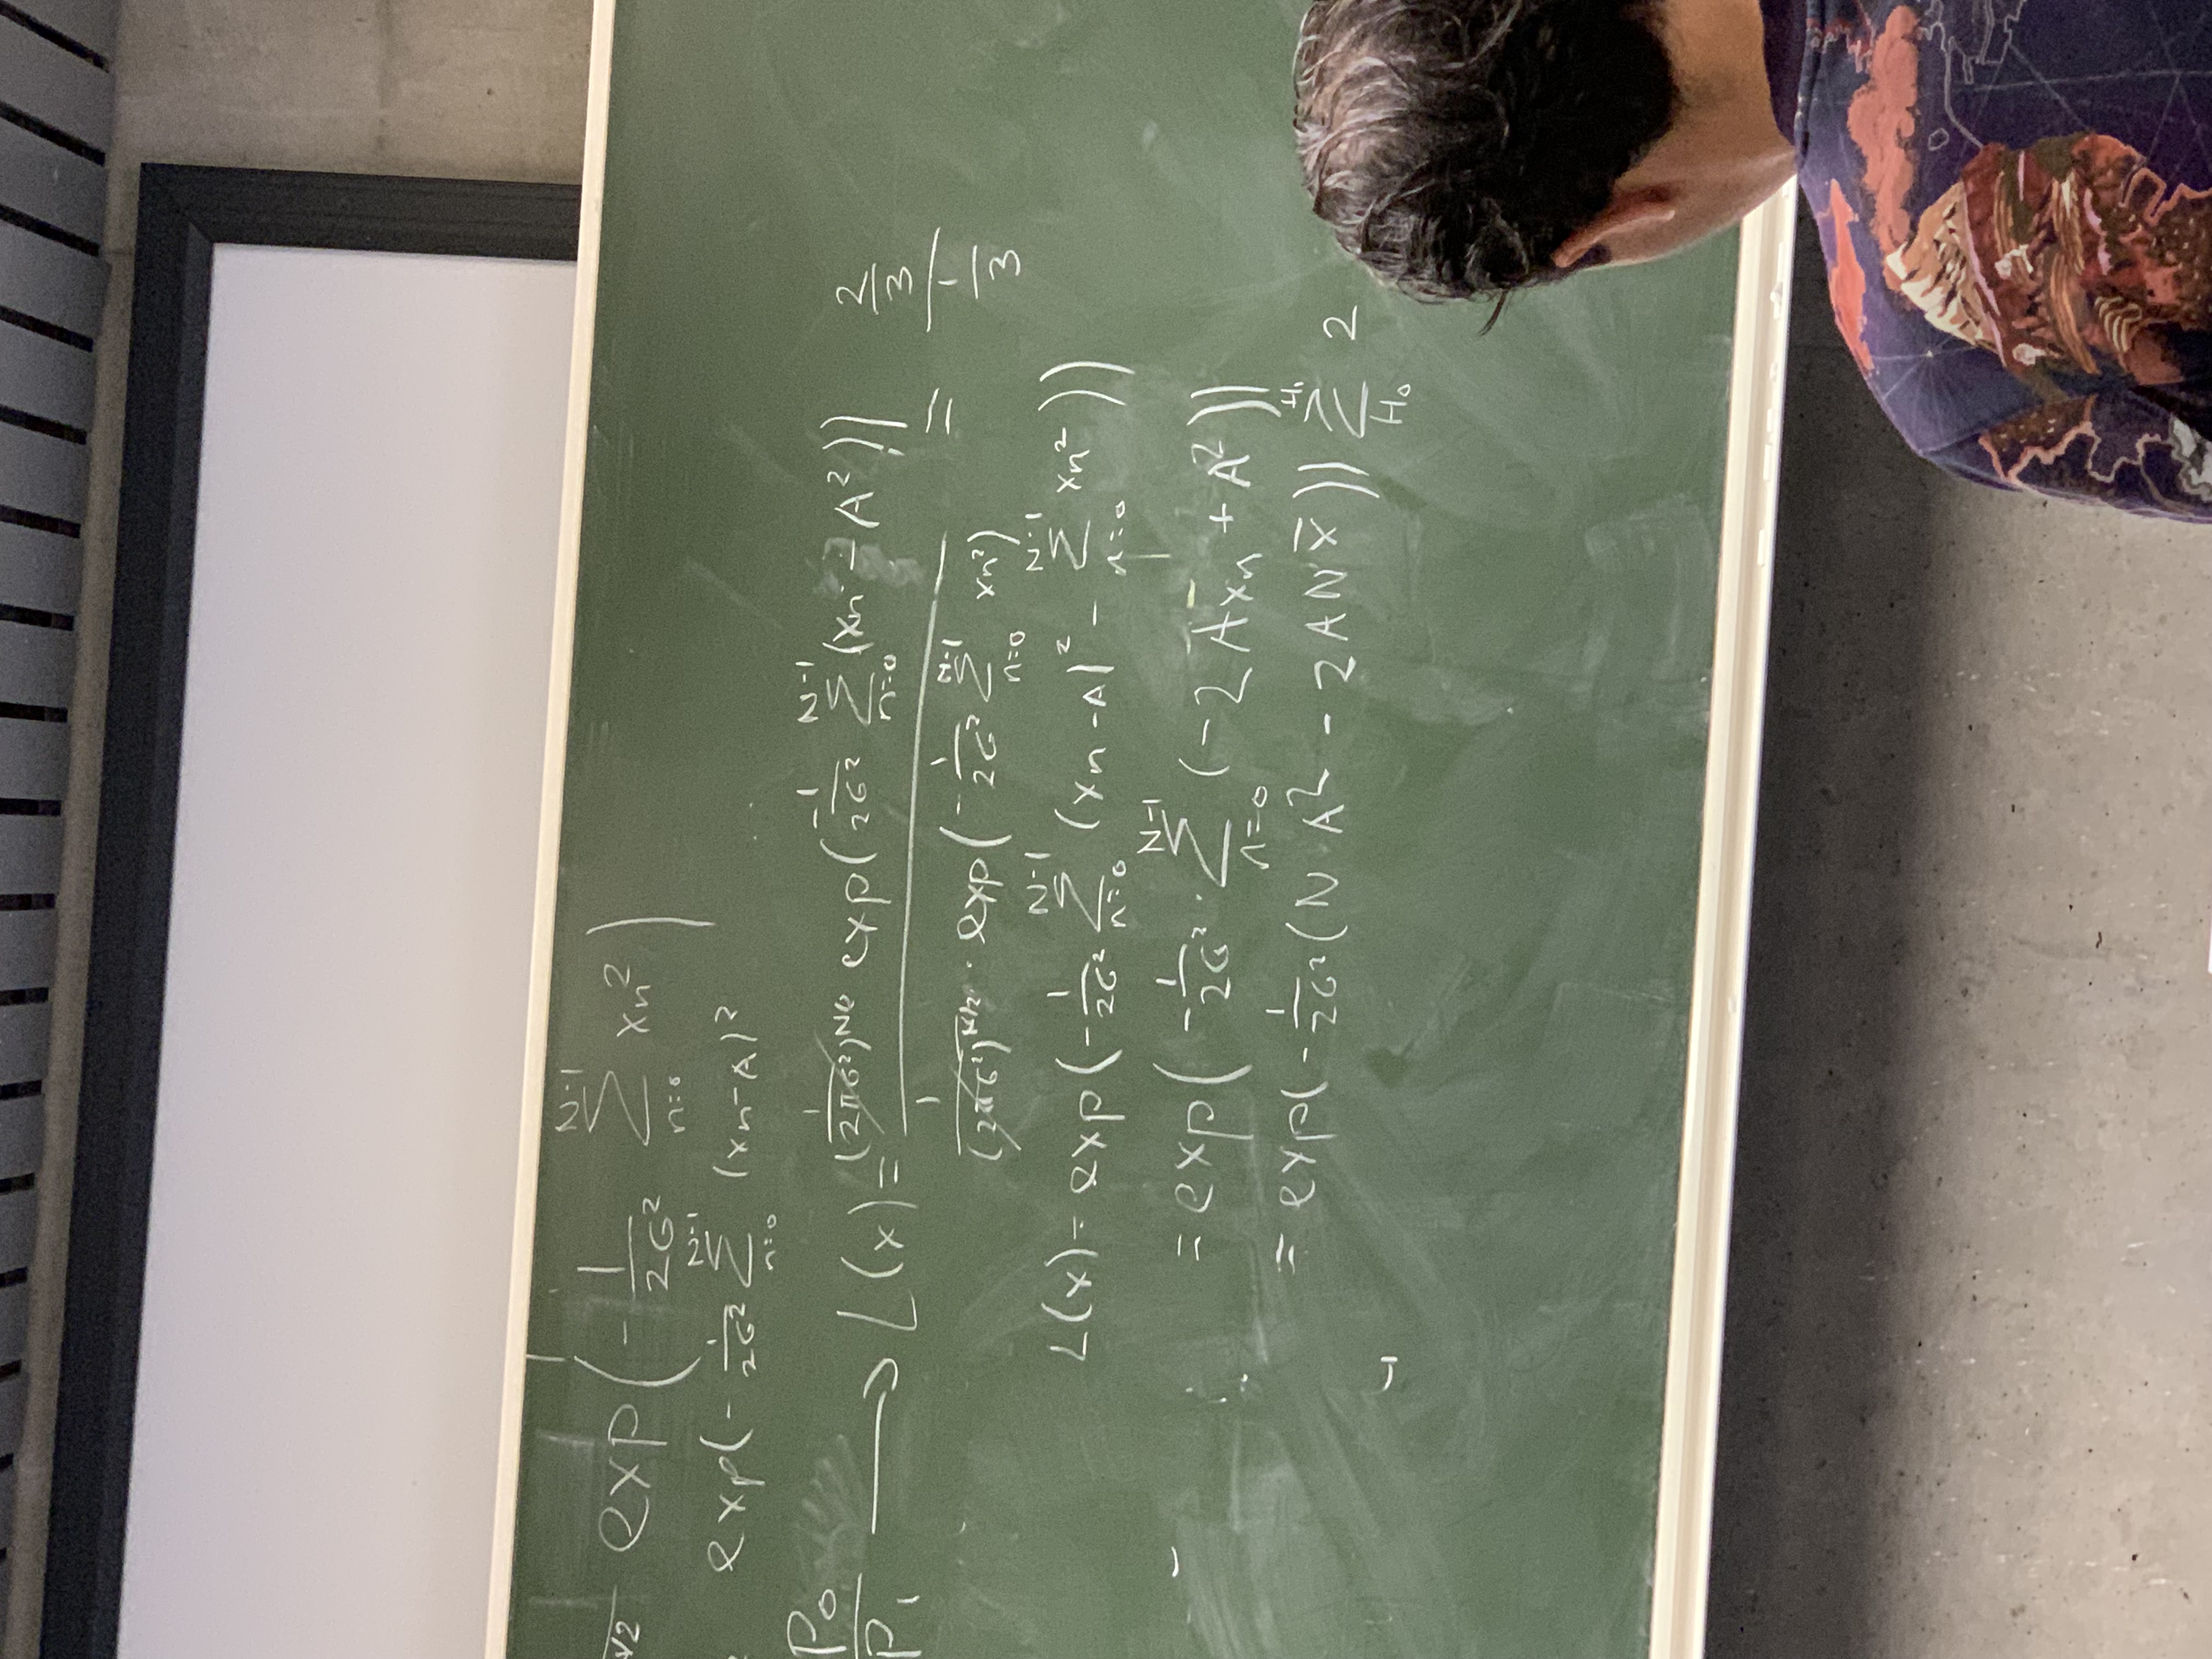 √2 exp(- 1/2σ² Σ_{n=0}^{N-1} xn²)
exp(- 1/2σ² Σ_{n=0}^{N-1} (xn-A)²
P0/P1 → L(x) = 1/(2πσ²)^{N/2} exp(-1/2σ² Σ_{n=0}^{N-1} (xn - A²)) / 1/(2πσ²)^{N/2} · exp(- 1/2σ² Σ_{n=0}^{N-1} xn²) = 2/3 / 1/3
L(x) = exp(- 1/2σ² Σ_{n=0}^{N-1} (xn - A)² - Σ_{n=0}^{N-1} xn²))
= exp(- 1/2σ² · Σ_{n=0}^{N-1} (-2Axn + A²))
= exp(- 1/2σ² (N A² - 2AN x̄)) ≷_{H0}^{H1} 2